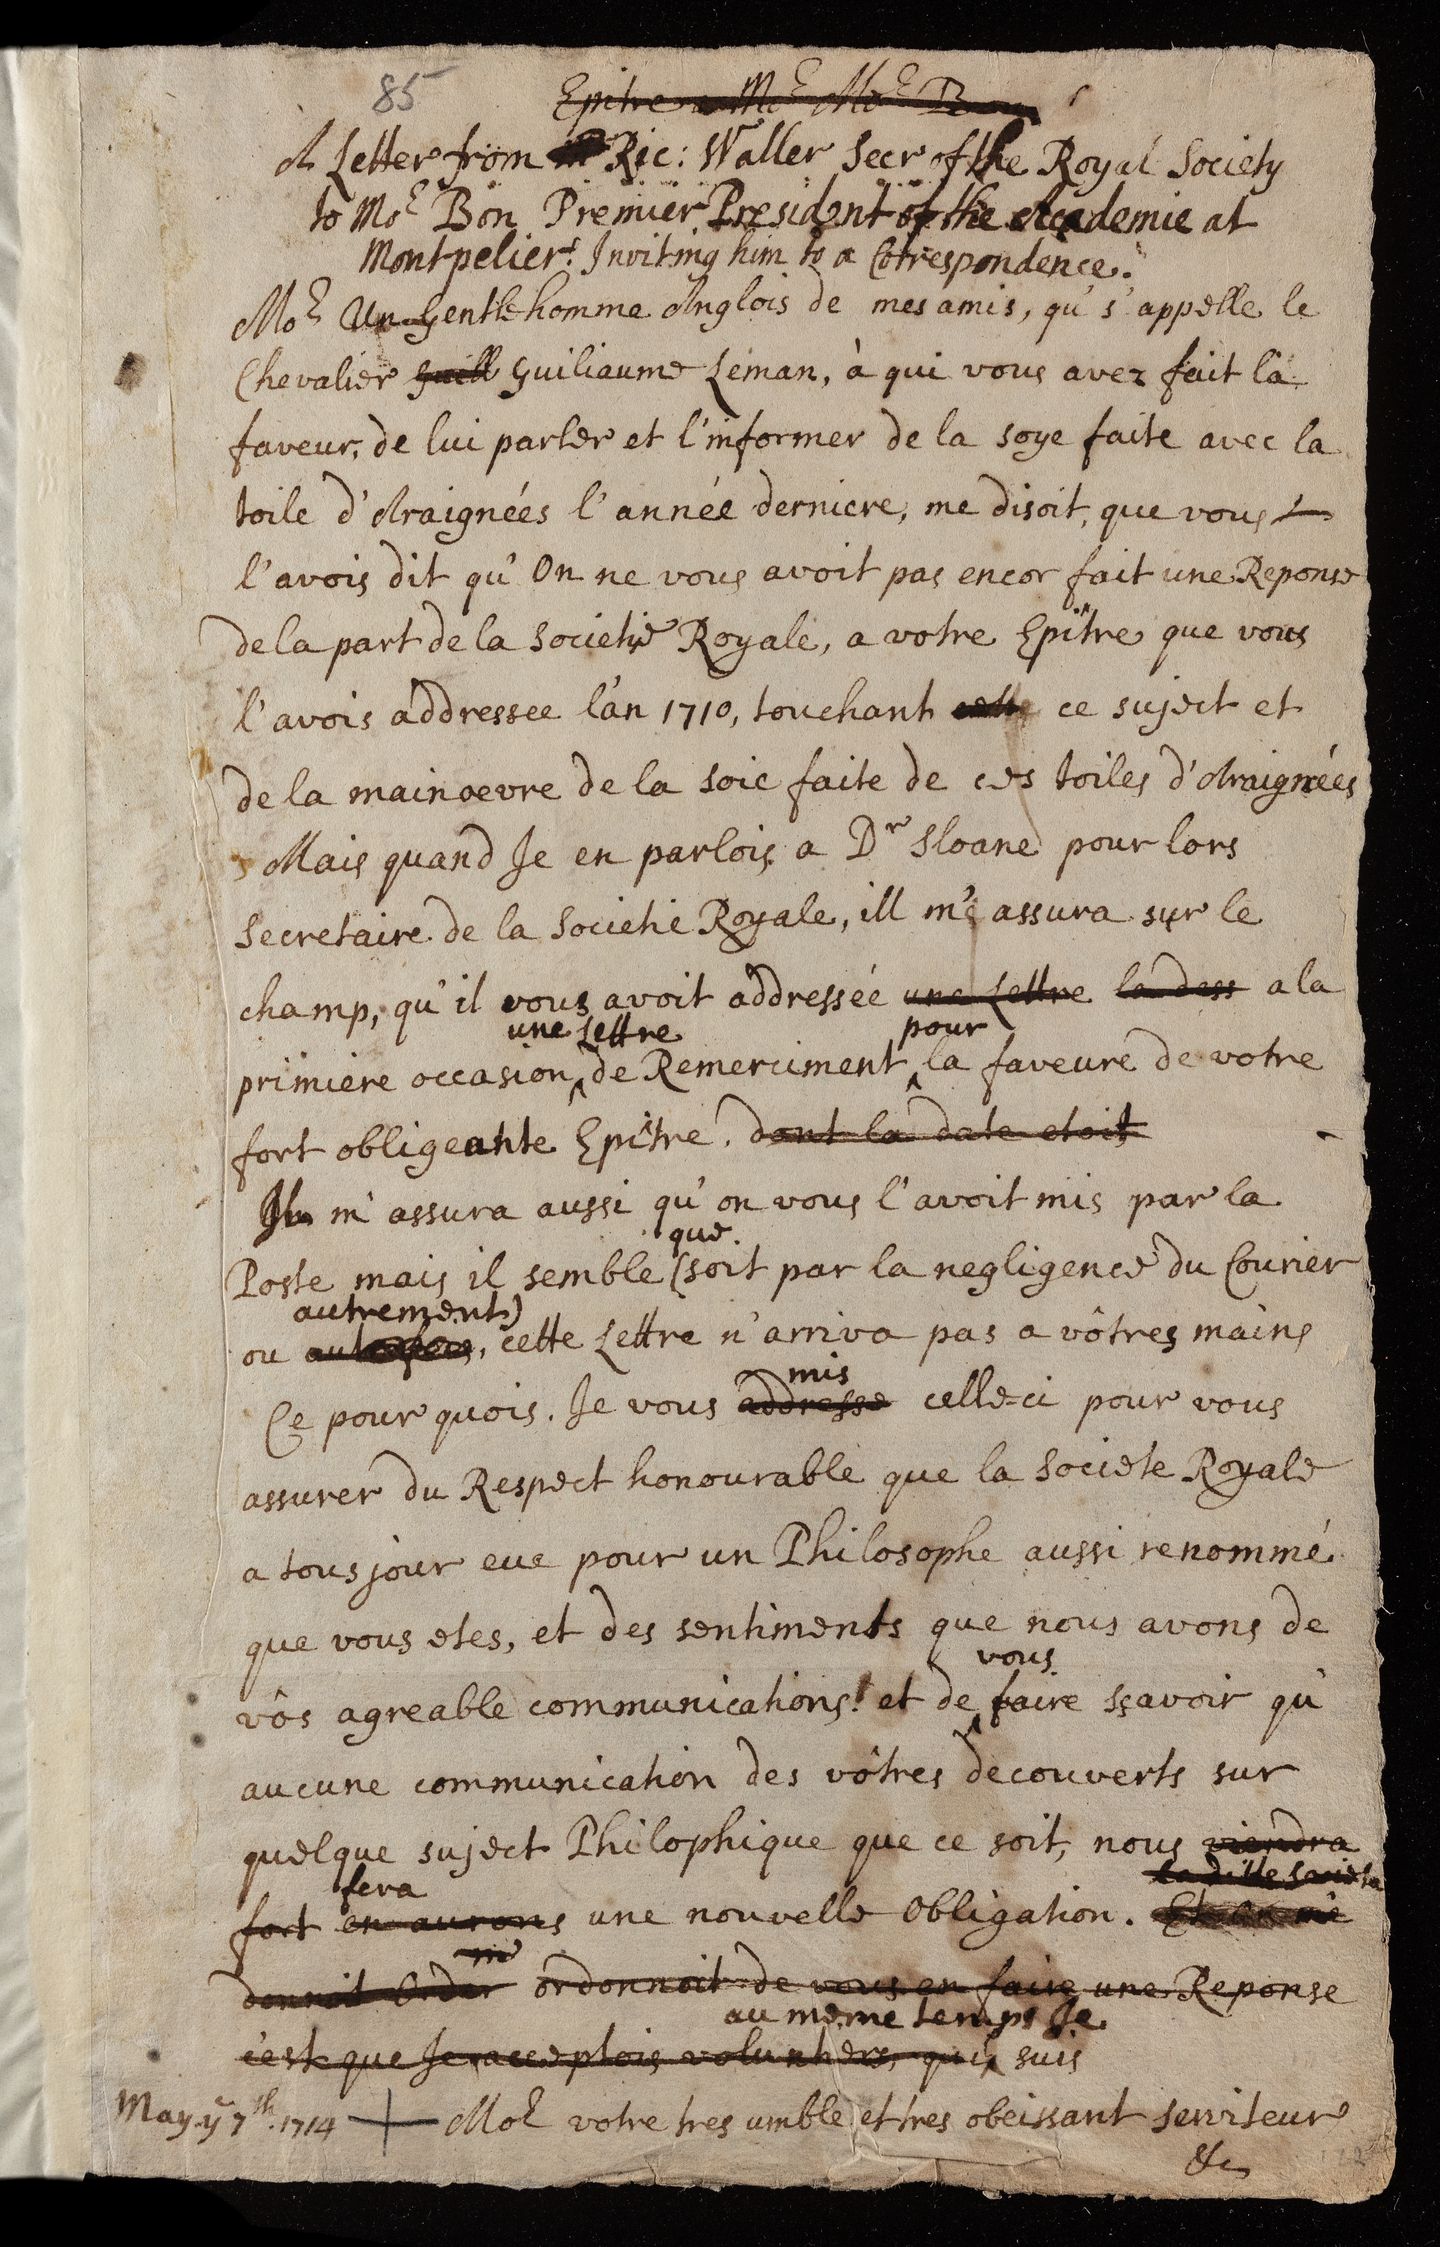 85
Epitre a Mr Mor Bon
A Letter from Ric: Waller Secr of the Royal Society
to Mor Bon Premier President of the Academie at
Montpelier. Inviting him to a Correspondence.
Mor Un Gentlehomme Anglois de mes amis, qu's'appelle le
Chevalier Guill Guiliaume Leman, à qui vous avez fait la
faveur, de lui parler et l'informer de la soye faite avec la
toile d'Araignées l'année derniere, me disoit, que vous
l'avois dit qu'On ne vous avoit pas encor fait une Reponse
de la part de la Societie Royale, a votre Epitre que vous
l'avois addressee l'an 1710, touchant cette ce suject et
de la mainoevre de la soie faite de ces toiles d'Araignées
Mais quand Je en parlois a Dr Sloane pour lors
Secretaire de la Societie Royale, ill m'assura sur le
champ, qu'il vous avoit addressée une Lettre la dess a la
une Lettre pour
primiere occasion ^ de Remerciment ^ la faveure de votre
fort obligeante Epitre. dont la date etoit
Il m'assura aussi qu'on vous l'avoit mis par la
que
Poste mais il semble (soit par la negligence du Courier
autrement)
ou autrefois, cette Lettre n'arriva pas a vôtres mains
mis
Ce pour quois. Je vous addresse celle-ci pour vous
assurer du Respect honourable que la Societe Royale
a tousjour eue pour un Philosophe aussi renommé
que vous etes, et des sentiments que nous avons de
vous
vôs agreable communications! et de ^ faire sçavoir qu'
aucune communication des vôtres decouverts sur
quelque suject Philophique que ce soit, nous viendra
fera la ditte Societe
fort en aurons une nouvelle Obligation. Et on me
me
donnoit Order ordonnoit de vous en faire une Reponse
au meme temps Je
c'est que Je acceptois voluntiers, qui ^ suis
May ye 7th. 1714 Mor votre tres umble et tres obeissant serviteur
&c